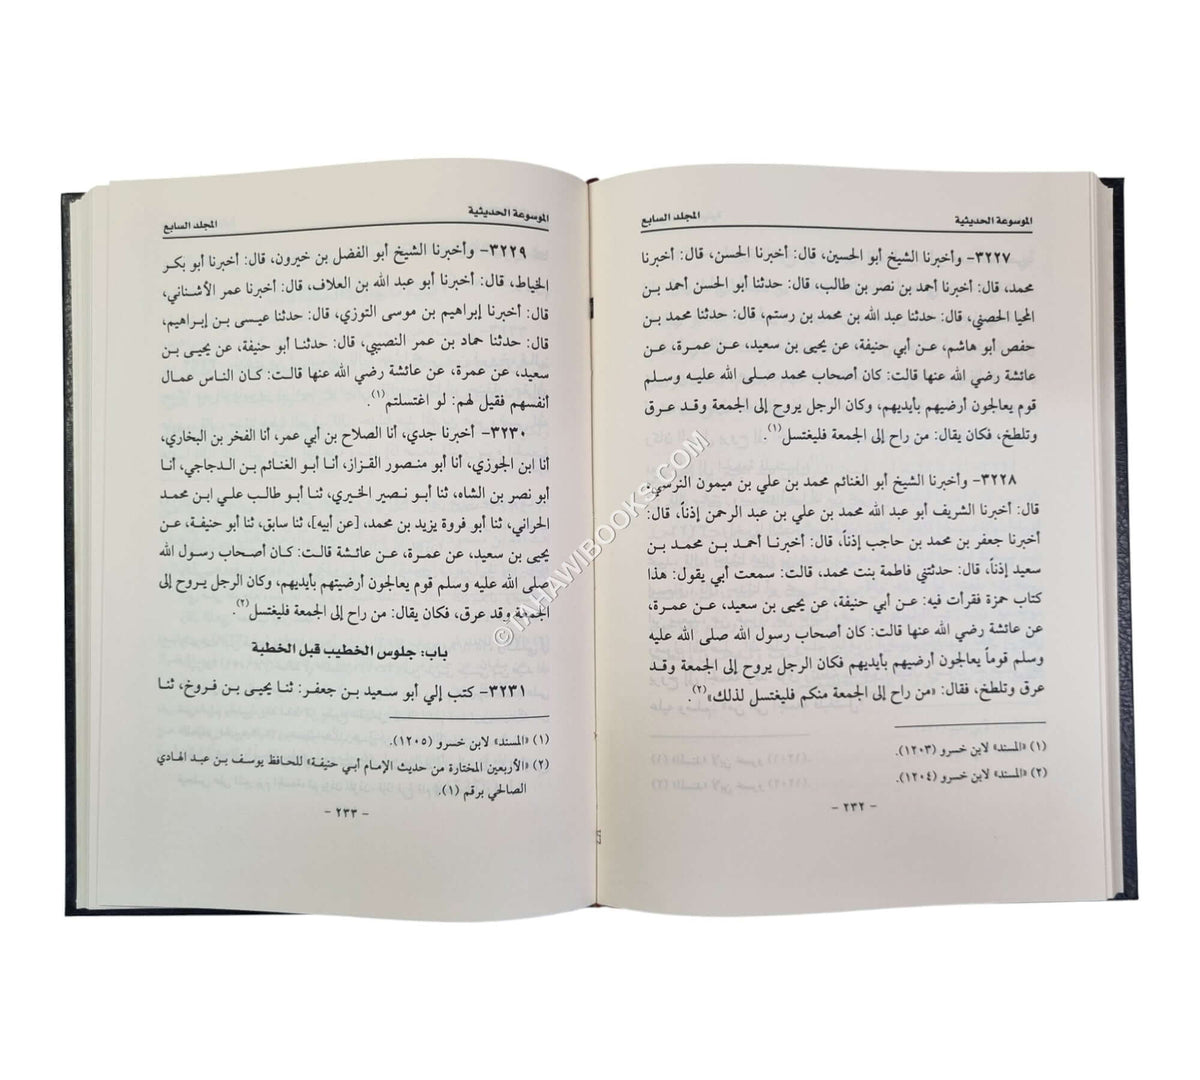 الموسوعة الحديثية المجلد السابع
٣٢٢٧- وأخبرنا الشيخ أبو الحسين، قال: أخبرنا الحسن، قال: أخبرنا
محمد، قال: أخبرنا أحمد بن نصر بن طالب، قال: حدثنا أبو الحسن أحمد بن
المحيا الحصني، قال: حدثنا عبد الله بن محمد بن رستم، قال: حدثنا محمد بن
حفص أبو هاشم، عن أبي حنيفة، عن يحيى بن سعيد، عن عمرة، عن
عائشة رضي الله عنها قالت: كان أصحاب محمد صلى الله عليه وسلم
قوم يعالجون أرضيهم بأيديهم، وكان الرجل يروح إلى الجمعة وقد عرق
وتلطخ، فكان يقال: من راح إلى الجمعة فليغتسل(١).
٣٢٢٨- وأخبرنا الشيخ أبو الغنائم محمد بن علي بن ميمون النرسي،
قال: أخبرنا الشريف أبو عبد الله محمد بن علي بن عبد الرحمن إذناً، قال:
أخبرنا جعفر بن محمد بن حاجب إذناً، قال: أخبرنا أحمد بن محمد بن
سعيد إذناً، قال: حدثتني فاطمة بنت محمد، قالت: سمعت أبي يقول: هذا
كتاب حمزة فقرأت فيه: عن أبي حنيفة، عن يحيى بن سعيد، عن عمرة،
عن عائشة رضي الله عنها قالت: كان أصحاب رسول الله صلى الله عليه
وسلم قوماً يعالجون أرضيهم بأيديهم فكان الرجل يروح إلى الجمعة وقد
عرق وتلطخ، فقال: «من راح إلى الجمعة منكم فليغتسل لذلك»(٢).
(١) «المسند» لابن خسرو (١٢٠٣).
(٢) «المسند» لابن خسرو (١٢٠٤).
- ٢٣٢ -
الموسوعة الحديثية المجلد السابع
٣٢٢٩- وأخبرنا الشيخ أبو الفضل بن خيرون، قال: أخبرنا أبو بكر
الخياط، قال: أخبرنا أبو عبد الله بن العلاف، قال: أخبرنا عمر الأشناني،
قال: أخبرنا إبراهيم بن موسى التوزي، قال: حدثنا عيسى بن إبراهيم،
قال: حدثنا حماد بن عمر النصيبي، قال: حدثنا أبو حنيفة، عن يحيى بن
سعيد، عن عمرة، عن عائشة رضي الله عنها قالت: كان الناس عمال
أنفسهم فقيل لهم: لو اغتسلتم(١).
٣٢٣٠- أخبرنا جدي، أنا الصلاح بن أبي عمر، أنا الفخر بن البخاري،
أنا ابن الجوزي، أنا أبو منصور القزاز، أنا أبو الغنائم بن الدجاجي، أنا
أبو نصر بن الشاه، ثنا أبو نصير الخيري، ثنا أبو طالب علي ابن محمد
الحراني، ثنا أبو فروة يزيد بن محمد، [عن أبيه]، ثنا سابق، ثنا أبو حنيفة، عن
يحيى بن سعيد، عن عمرة، عن عائشة قالت: كان أصحاب رسول الله
صلى الله عليه وسلم قوم يعالجون أرضيتهم بأيديهم، وكان الرجل يروح إلى
الجمعة وقد عرق، فكان يقال: من راح إلى الجمعة فليغتسل(٢).
باب: جلوس الخطيب قبل الخطبة
٣٢٣١- كتب إلي أبو سعيد بن جعفر: ثنا يحيى بن فروخ، ثنا
(١) «المسند» لابن خسرو (١٢٠٥).
(٢) «الأربعين المختارة من حديث الإمام أبي حنيفة» للحافظ يوسف بن عبد الهادي
الصالحي برقم (١).
- ٢٣٣ -
©TAHAWIBOOKS.COM